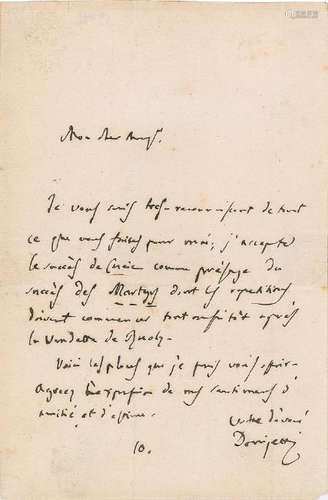 Mon cher ami.
Je vous suis très-reconnaissant de tout
ce que vous faites pour moi; j'accepte
le succès de Lucie comme présage du
succès des Martyrs dont les répétitions
doivent commencer tout aussitôt après
la Vendetta de Ruolz.
Voici plus que je puis vous offrir.
Agréez l'expression de mes sentiments d'
amitié et d'estime.
votre dévoué
Donizetti
10.